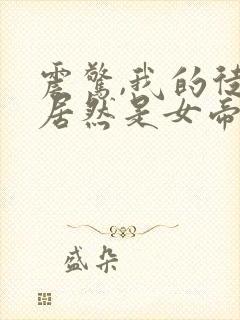 震惊,我的徒
居然是女帝
盛朵